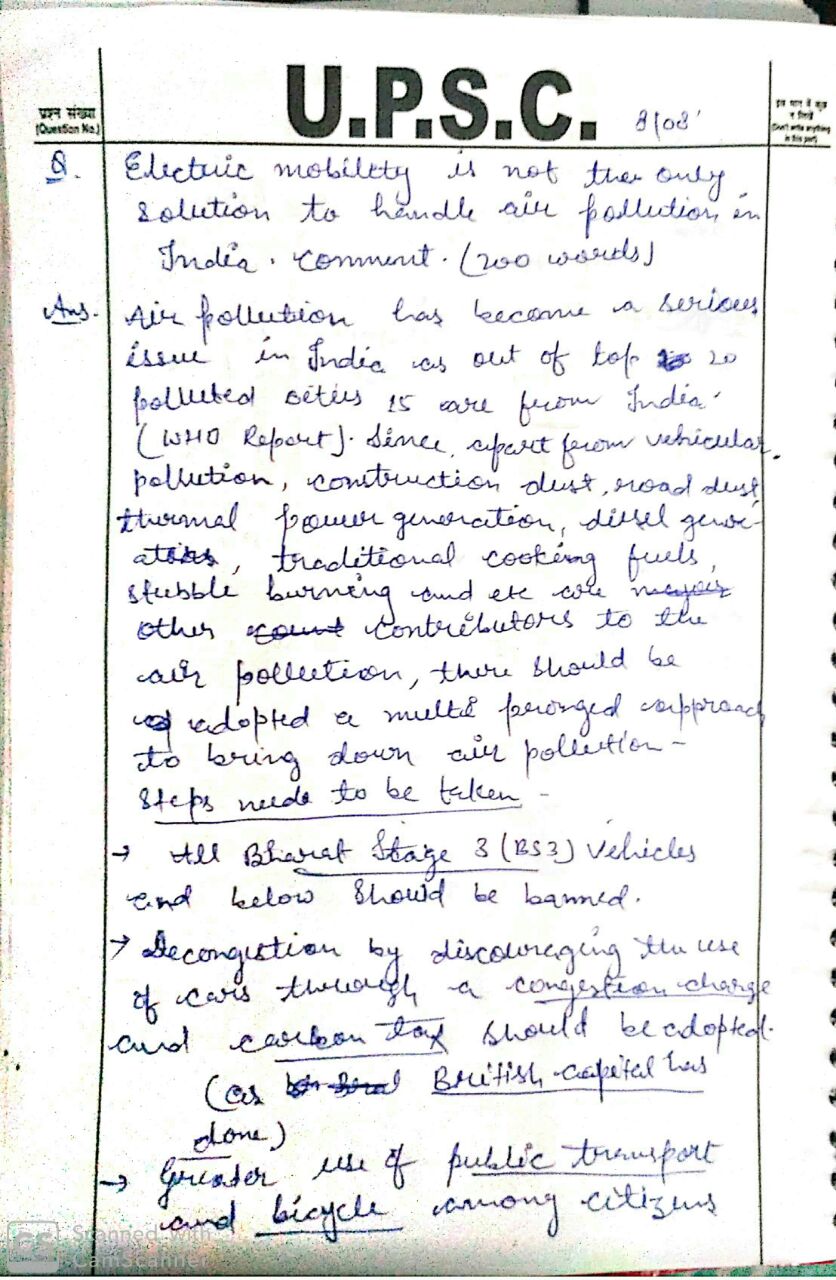 U.P.S.C.
प्रश्न संख्या
(Question No.)
8/08
इस भाग में कुछ
न लिखें
(Don't write anything
in this part)
Q. Electric mobility is not the only
solution to handle air pollution in
India. comment. (200 words)
Ans. Air pollution has become a serious
issue in India as out of top 20
polluted cities 15 are from India.
(WHO Report). Since, apart from vehicular
pollution, construction dust, road dust,
thermal power generation, diesel gener-
ators, traditional cooking fuels,
stubble burning and etc are major
other count contributors to the
air pollution, there should be
adopted a multi pronged approach
to bring down air pollution -
Steps needs to be taken -
→ All Bharat Stage 3 (BS3) vehicles
and below should be banned.
→ Decongestion by discouraging the use
of cars through a congestion charge
and carbon tax should be adopted.
(as British capital has
done)
→ Greater use of public transport
and bicycle among citizens
CS Scanned with
CamScanner